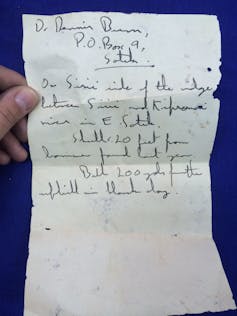 Dr Dennis Burn,
P.O. Box 9,
Sotik.
On Sisi side of the ridge
between Sisi and Kipsonoi
rivers in E Sotik.
Skull: 20 feet from
found last year
Bell 200 yds further
uphill in black clay.